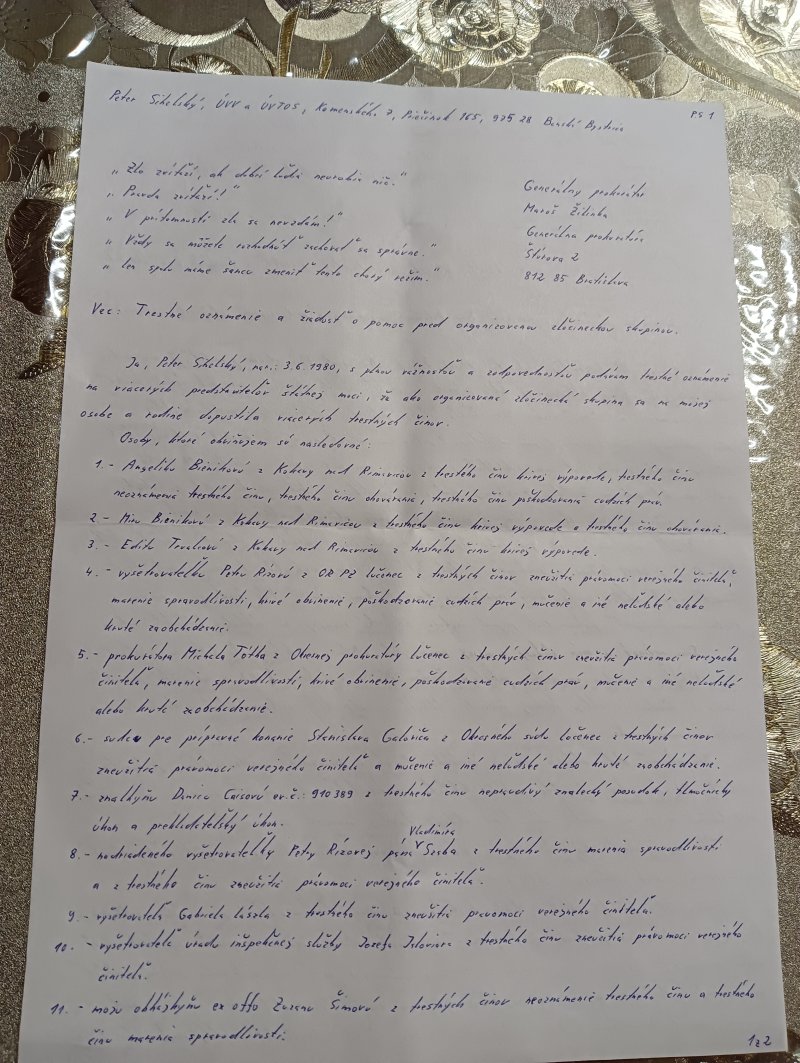 Peter Sihelský, ÚVV a ÚVTOS, Komenského 7, Priečinok 165, 975 28 Banská Bystrica
PS 1
„Zlo zvíťazí, ak dobrí ľudia neurobia nič."
„Pravda zvíťazí!"
„V prítomnosti zla sa nevzdám!"
„Vždy sa môžete rozhodnúť zachovať sa správne."
„len spolu máme šancu zmeniť tento chorý režim."
Generálny prokurátor
Maroš Žilinka
Generálna prokuratúra
Štúrova 2
812 85 Bratislava
Vec: Trestné oznámenie a žiadosť o pomoc pred organizovanou zločineckou skupinou.
Ja, Peter Sihelský, nar.: 3.6.1980, s plnou vážnosťou a zodpovednosťou podávam trestné oznámenie
na viacerých predstaviteľov štátnej moci, že ako organizovaná zločinecká skupina sa na mojej
osobe a rodine dopustila viacerých trestných činov.
Osoby, ktoré obviňujem sú nasledovné:
1.- Angeliku Biénikovú z Kokavy nad Rimavicou z trestného činu krivej výpovede, trestného činu
neoznámenia trestného činu, trestného činu ohovárania, trestného činu poškodzovania cudzích práv.
2.- Miu Biénikovú z Kokavy nad Rimavicou z trestného činu krivej výpovede a trestného činu ohovárania.
3.- Editu Trvalcovú z Kokavy nad Rimavicou z trestného činu krivej výpovede.
4.- vyšetrovateľku Petru Rízovú z OR PZ Lučenec z trestných činov zneužitia právomoci verejného činiteľa,
marenie spravodlivosti, krivé obvinenie, poškodzovanie cudzích práv, mučenie a iné neľudské alebo
kruté zaobchádzanie.
5.- prokurátora Michala Tótha z Okresnej prokuratúry Lučenec z trestných činov zneužitia právomoci verejného
činiteľa, marenie spravodlivosti, krivé obvinenie, poškodzovanie cudzích práv, mučenie a iné neľudské
alebo kruté zaobchádzanie.
6.- sudcu pre prípravné konanie Stanislava Galoviča z Okresného súdu Lučenec z trestných činov
zneužitia právomoci verejného činiteľa a mučenie a iné neľudské alebo kruté zaobchádzanie.
7.- znalkyňu Danicu Caisovú ev.č.: 910389 z trestného činu nepravdivý znalecký posudok, tlmočnícky
úkon a prekladateľský úkon.
8.- nadriadeného vyšetrovateľky Petry Rízovej pána Vladimíra Sraba z trestného činu marenia spravodlivosti
a z trestného činu zneužitia právomoci verejného činiteľa.
9.- vyšetrovateľa Gabriela Lászla z trestného činu zneužitia pravomoci verejného činiteľa.
10.- vyšetrovateľa úradu inšpekčnej služby Jozefa z trestného činu zneužitia právomoci verejného
činiteľa.
11.- moju obhájkyňu ex offo Zuzanu Šimovú z trestných činov neoznámenie trestného činu a trestného
činu marenia spravodlivosti.
1z2